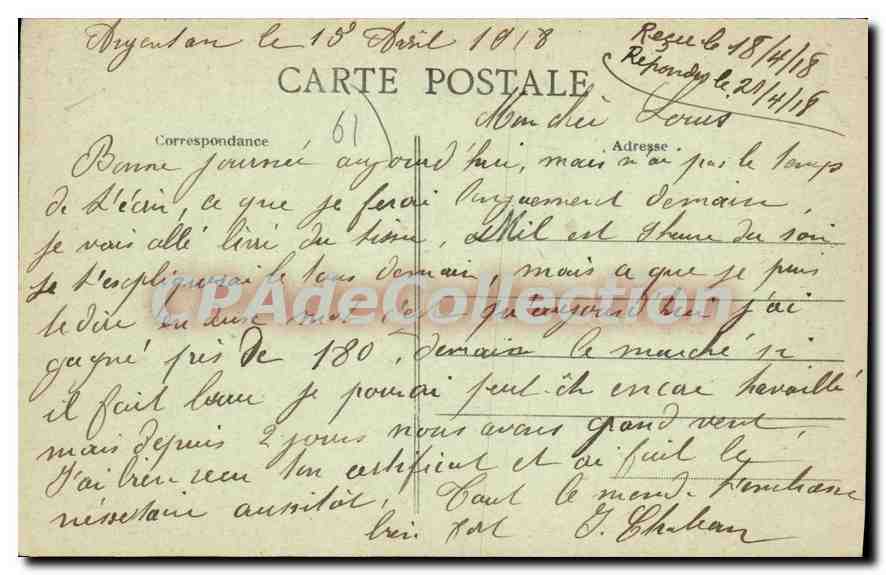 Argentan le 13 Avril 1918
Reçu le 18/4/18
Répondu le 21/4/18
CARTE POSTALE
Mon cher Louis
61
Correspondance
Adresse
Bonne journée aujourd'hui, mais n'ai pas le temps
de t'écrir, ce que je ferai longuement demain,
je vais allé livré du tissu, il est 9 heure du soir
je t'espliquerai le tous demain, mais a que je puis
te dire en deux mot c'est qu'aujourd'hui j'ai
gagné près de 180, demain le marché si
il fait beau je pourrai peut-êtr encore travaillé
mais depuis 2 jours nous avons grand vent,
J'ai bien reçu ton certificat et ai fait le
nécessaire aussitôt, Tout le monde t'embrasse
bien fort J.
CPAdeCollection